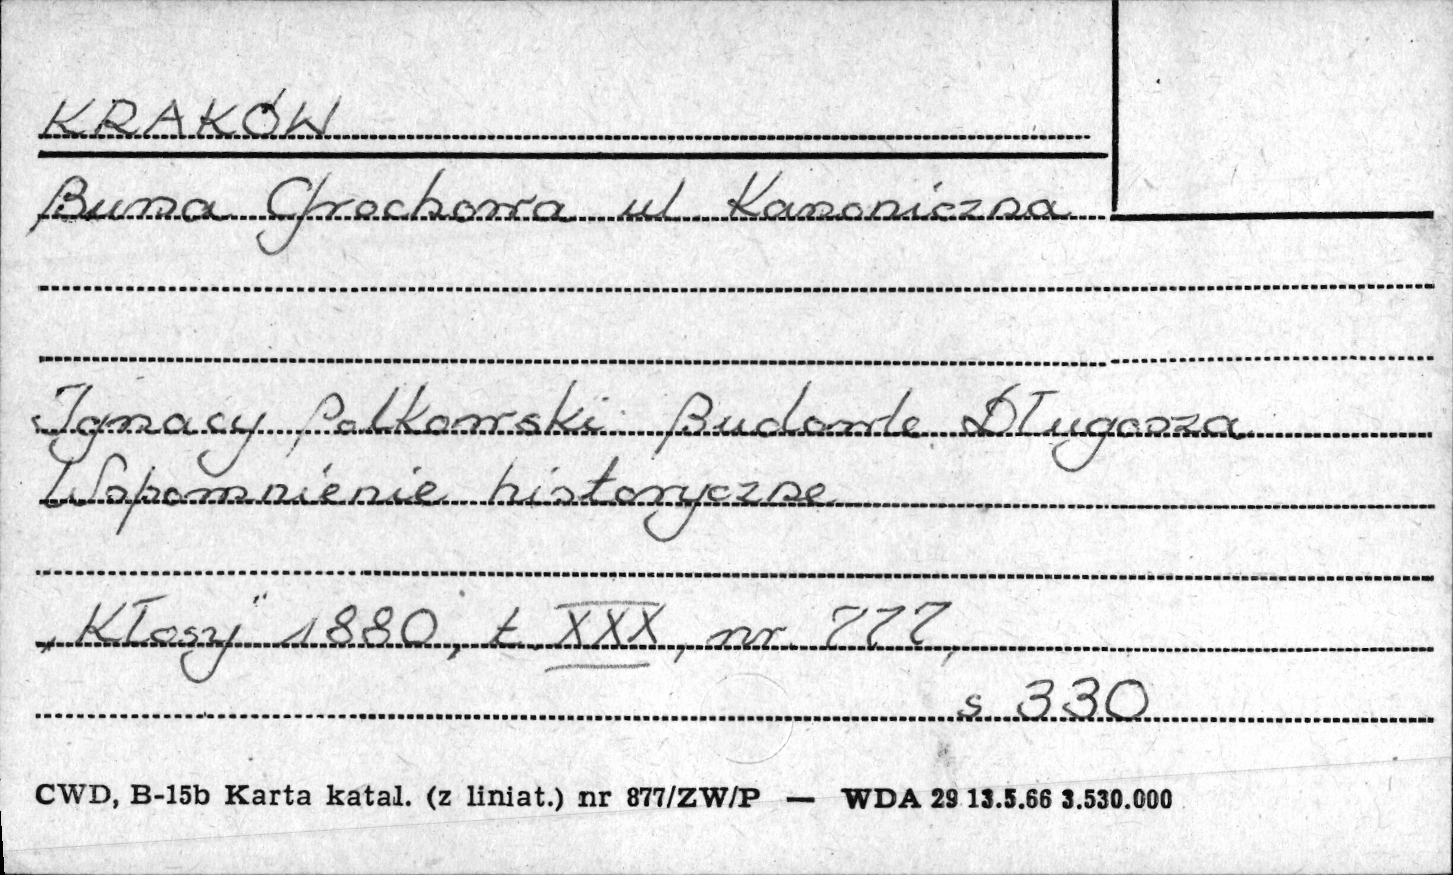 KRAKÓW
Bursa Grochowa ul Kanoniczna
Ignacy Polkowski Budowle Długosza
Wspomnienie historyczne
„Kłosy" 1880, t. XXX, nr. 777,
s 330
CWD, B-15b Karta katal. (z liniat.) nr 877/ZW/P — WDA 29 13.5.66 3.530.000